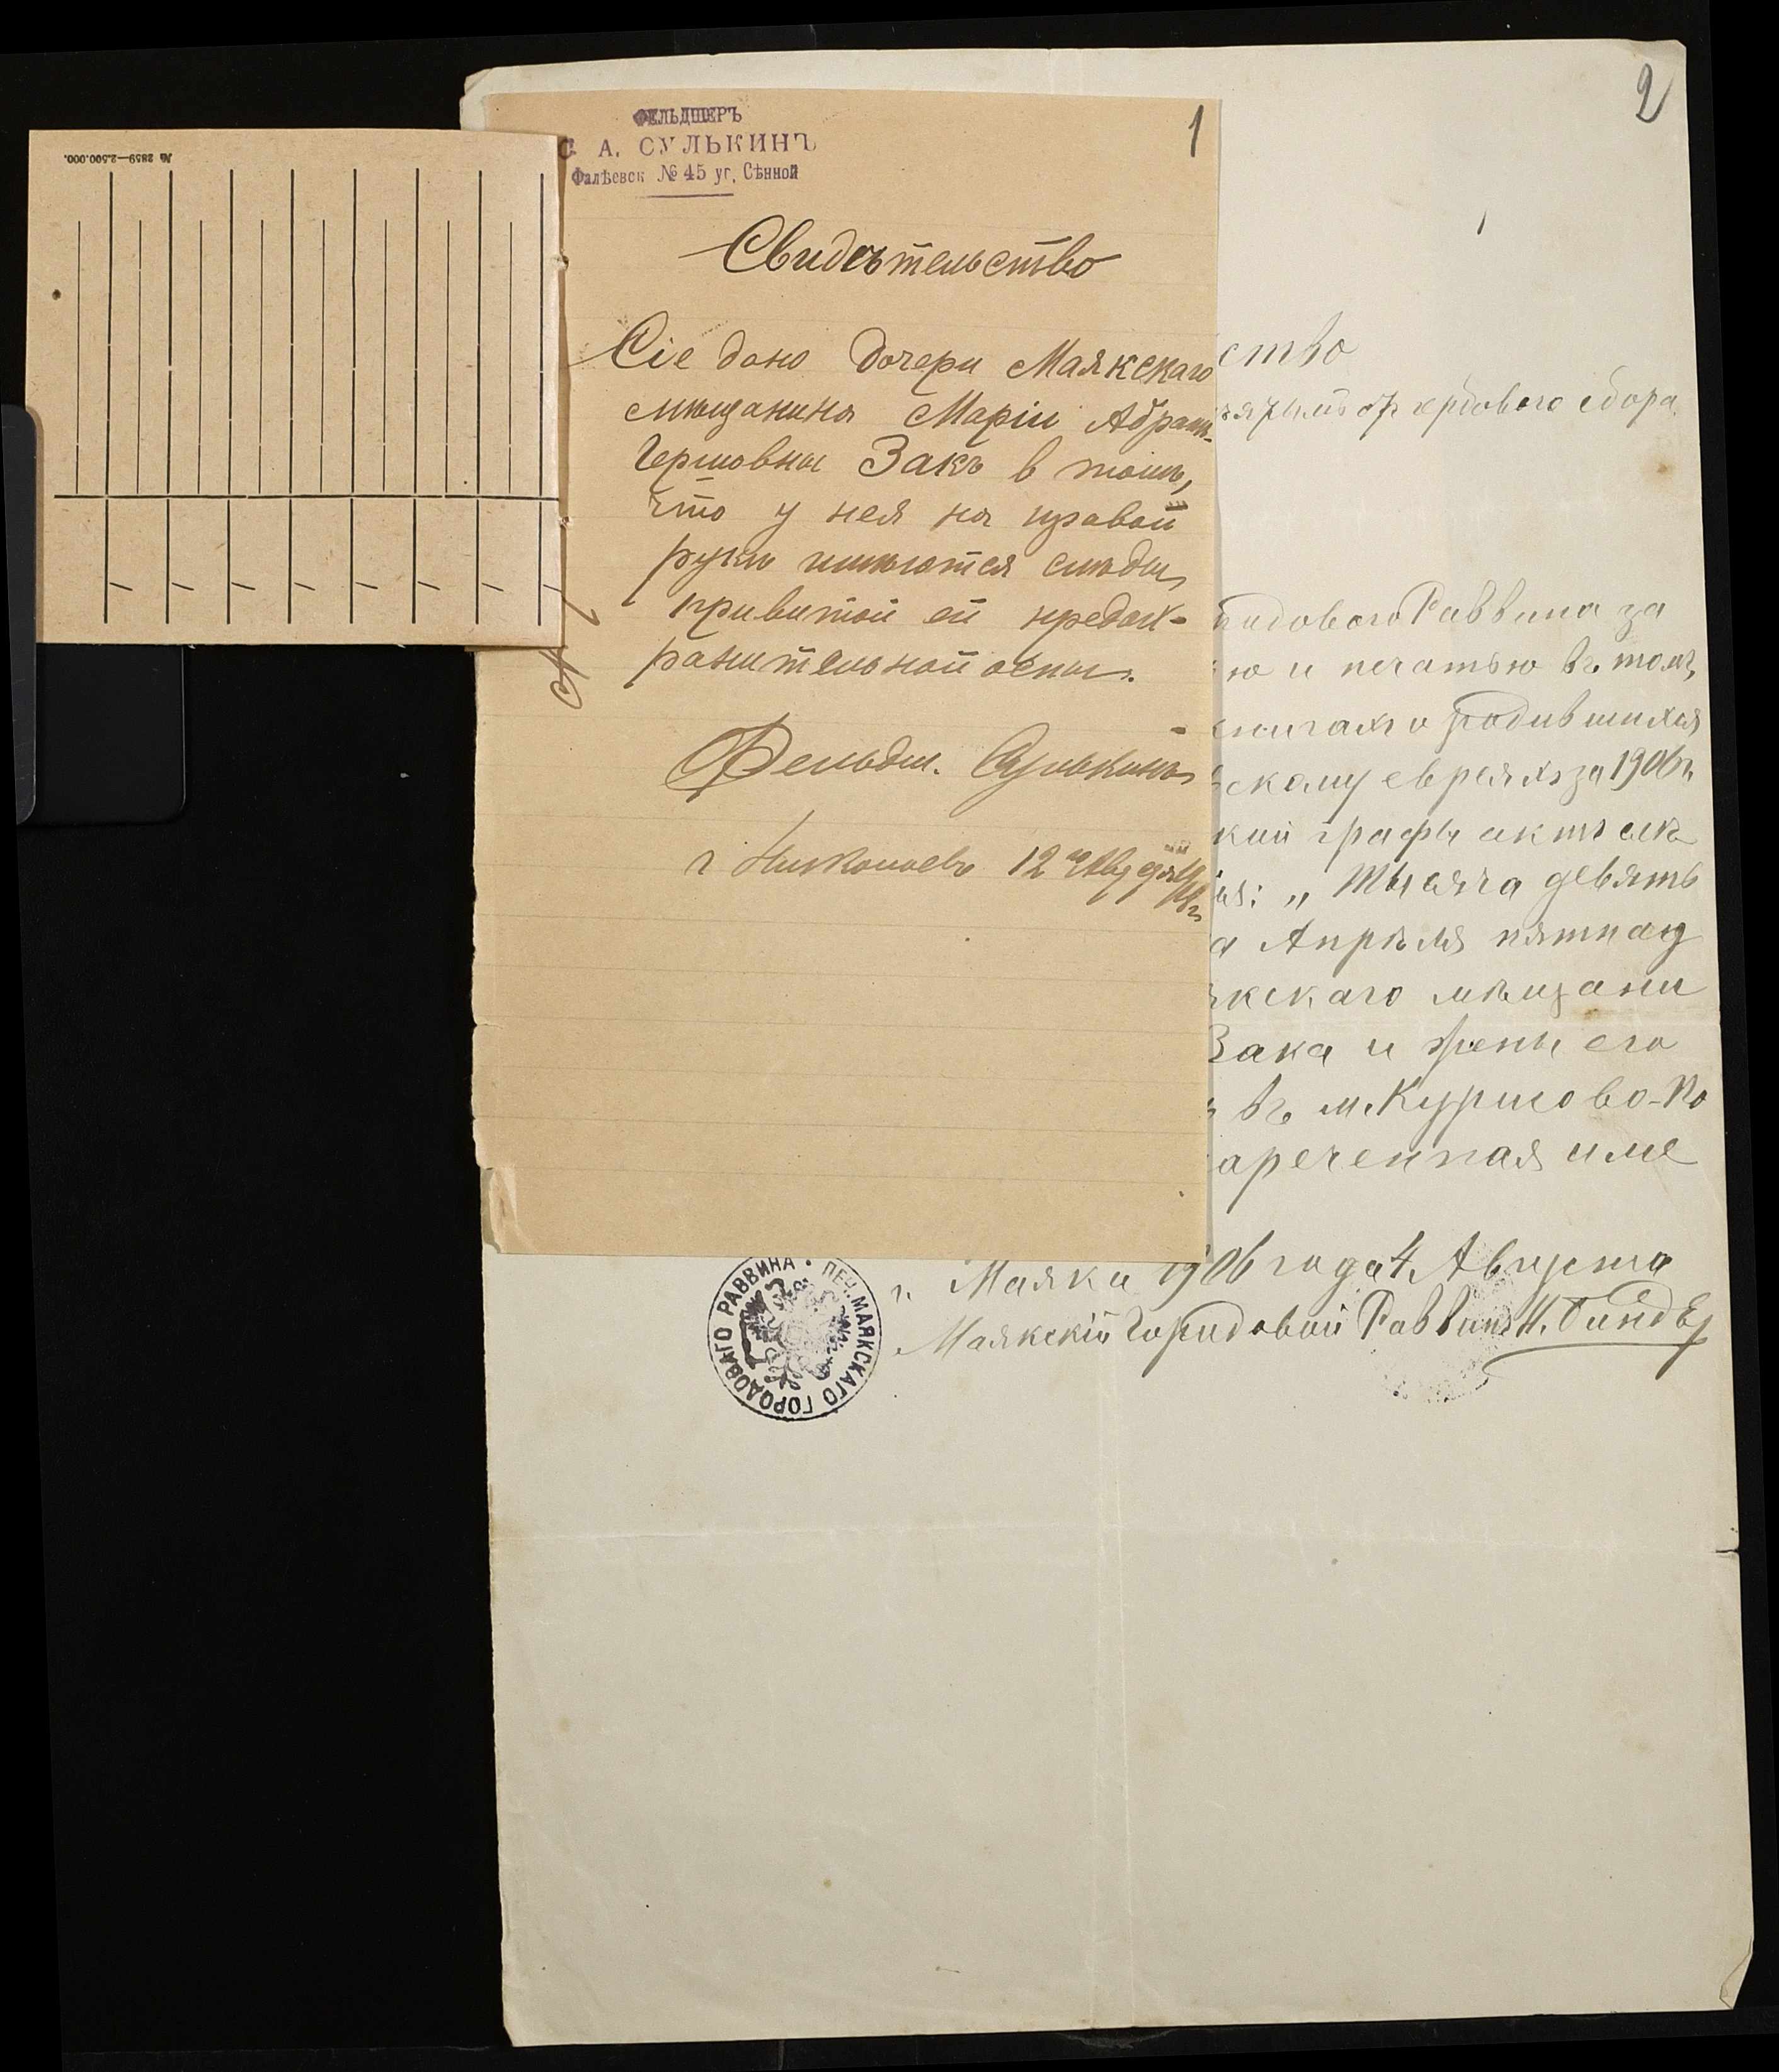 № 2859—2.500.000.
ФЕЛЬДШЕРЪ
С. А. СУЛЬКИНЪ
Фалѣевск № 45 уг. Сѣнной
1
Свидѣтельство
Сіе дано дочери Маякскаго
мѣщанина Маріи Абрамъ-
Гершовны Закъ в томъ,
что у нея на правой
рукѣ имѣются слѣды
привитой ей предох-
ранительной оспы.
Фельдш. Сулькинъ
г Николаевъ 12 го
2
ство
сбора
Раввина за
ю и печатью въ томъ,
книгахъ о родившихся
скому евреяхъ за 1906 г.
кой графы актъ
ія: „Тысяча девять
а Апрѣля пятнад
якскаго мѣщани
Зака и жены его
въ м. Курисово-По
нареченная име
г. Маяки 1906 года 4 Августа
Маякскій Городовой Раввинъ
ПЕЧ. МАЯКСКАГО ГОРОДОВАГО РАВВИНА